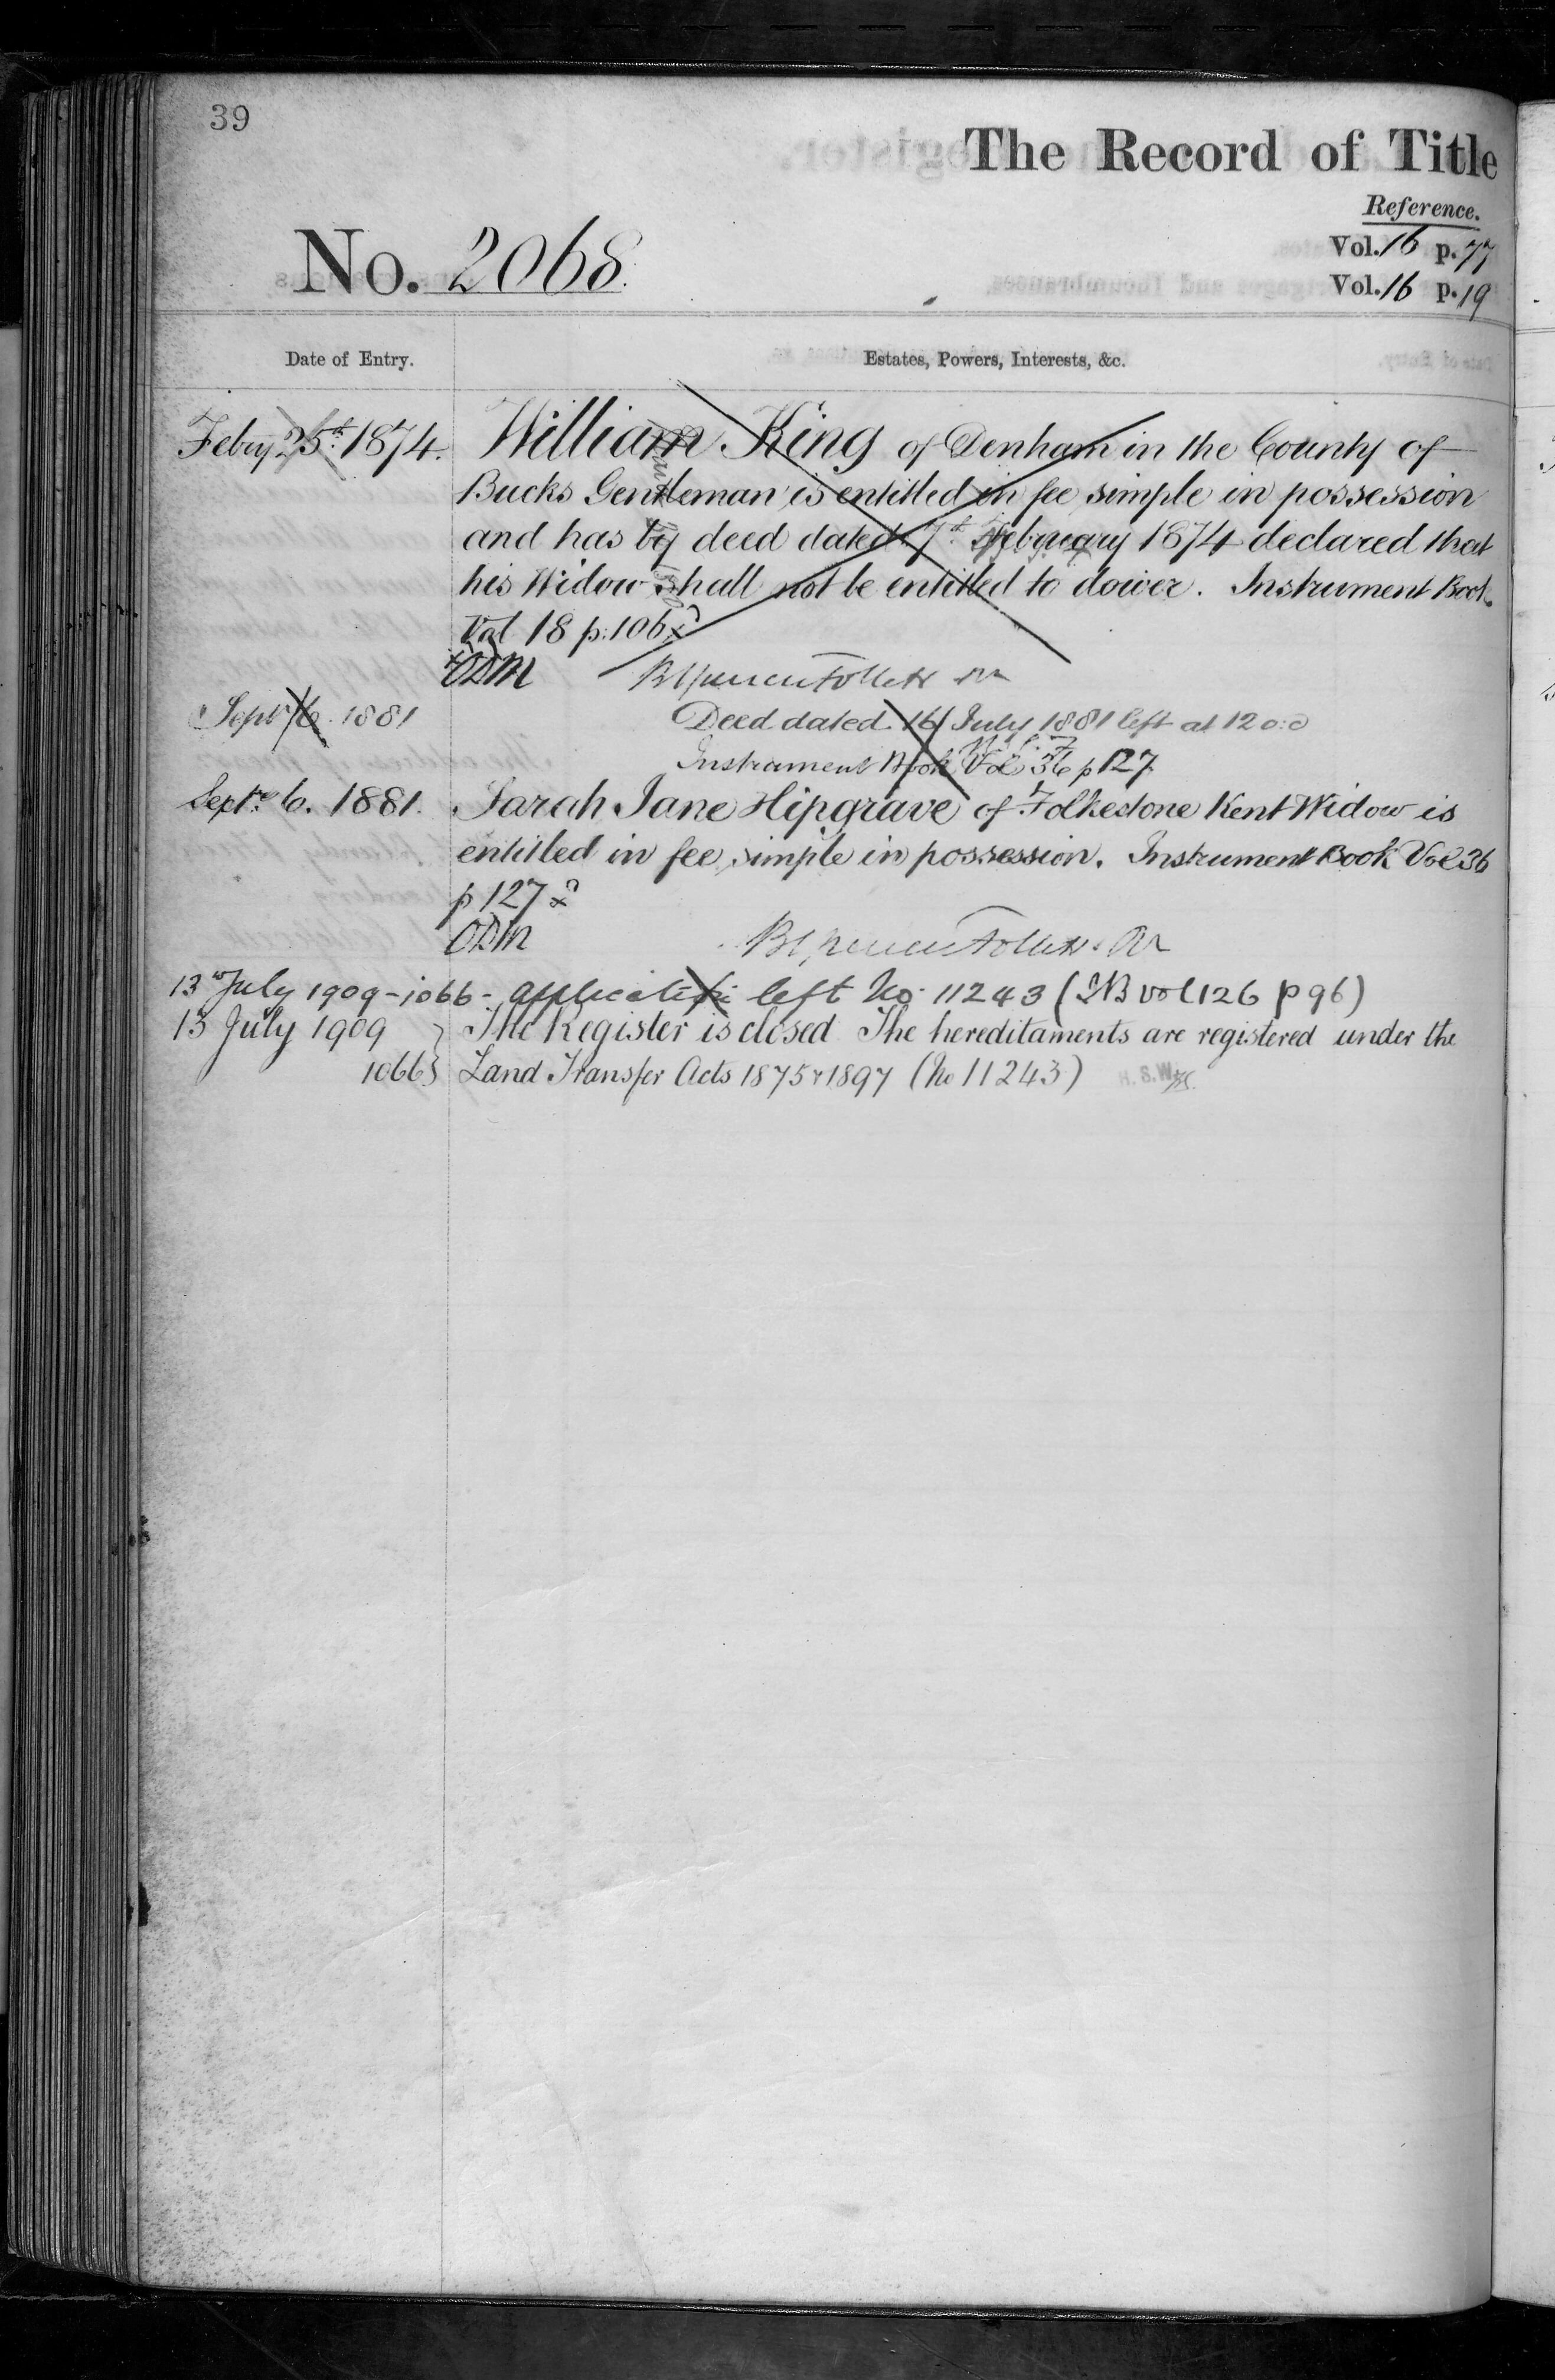 39
The Record of Title
Reference.
No. 2068.
Vol. 16 p. 77
Vol. 16 p. 19
Date of Entry.
Estates, Powers, Interests, &c.
Febry 25th 1874. William King of Denham in the County of
Bucks Gentleman is entitled in fee simple in possession
and has by deed dated 7th February 1874 declared that
his Widow shall not be entitled to dower. Instrument Book
Vol 18 p. 106
ODM Follett
Septr 6. 1881 Deed dated 16 July 1881 left at 12 o:c
Instrument Book Vol 36 p 127
Septr 6. 1881. Sarah Jane Hipgrave of Folkestone Kent Widow is
entitled in fee simple in possession. Instrument Book Vol 36
p 127
ODM Follett
13 July 1909 - 1066 - application left No. 11243 (IB vol 126 p 96)
13 July 1909 } The Register is closed The hereditaments are registered under the
1066 } Land Transfer Acts 1875 & 1897 (No 11243) H.S.W.